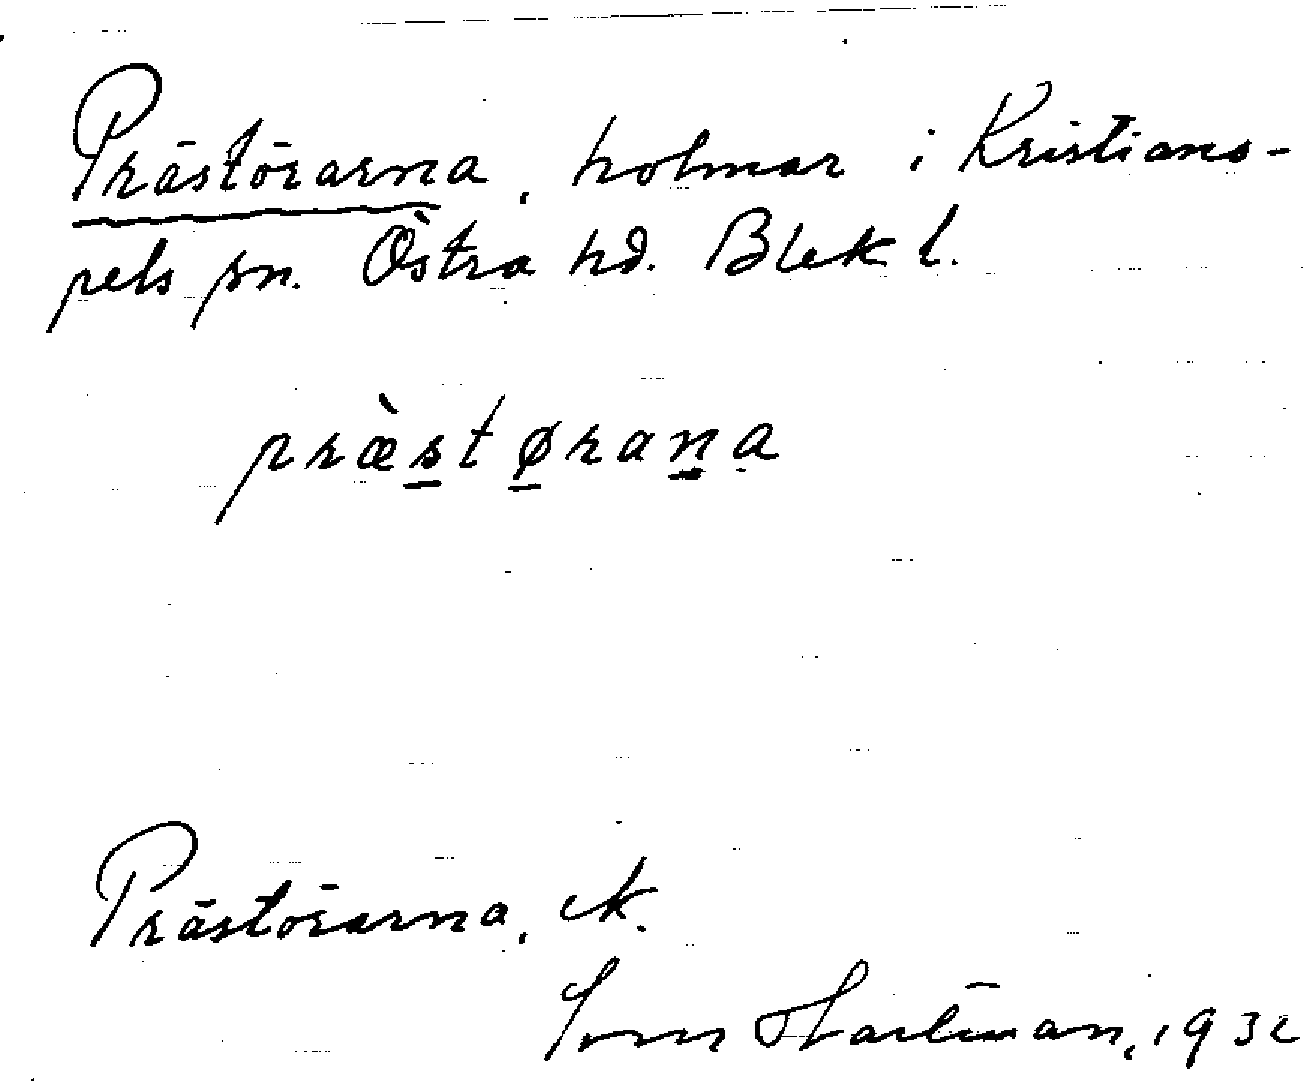 Prästörarna, holmar i Kristiano-
pels sn. Östra hd. Blek l.
præ̀størana
Prästörarna, ek.
Sven Hartman, 1932